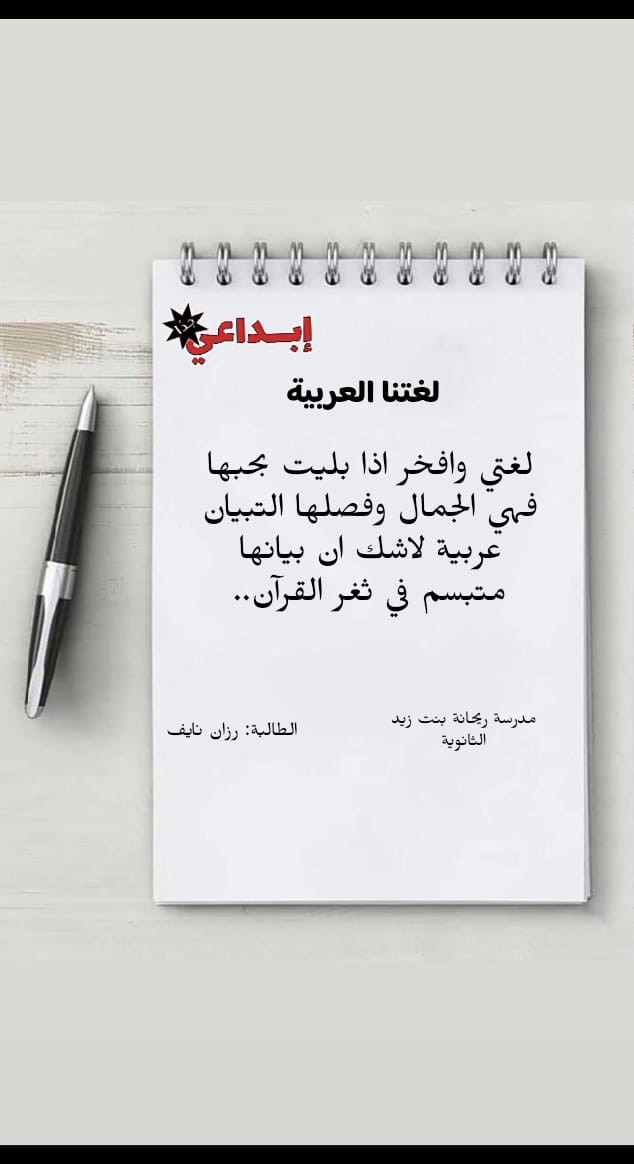 إبداعي
لغتنا العربية
لغتي وافخر اذا بليت بحبها
فهي الجمال وفصلها التبيان
عربية لاشك ان بيانها
متبسم في ثغر القرآن..
مدرسة ريحانة بنت زيد
الثانوية
الطالبة: رزان نايف